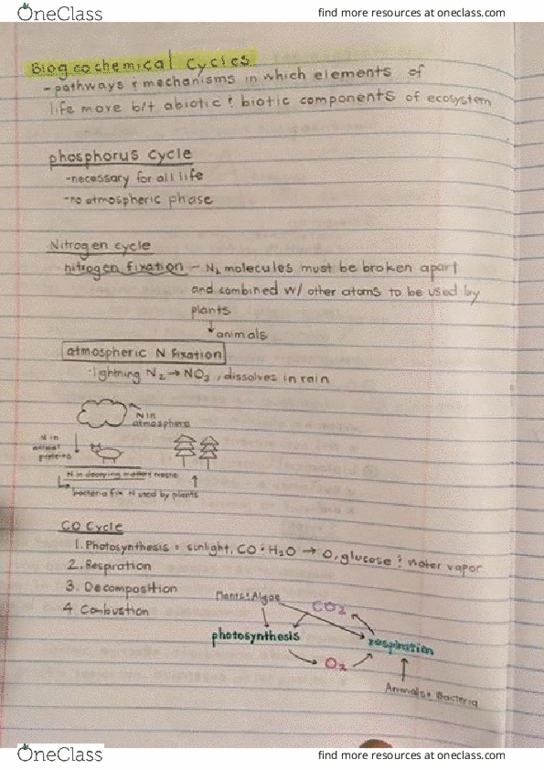 OneClass
find more resources at oneclass.com
Biogeochemical Cycles
-pathways & mechanisms in which elements of
life move b/t abiotic & biotic components of ecosystem
phosphorus cycle
-necessary for all life
-no atmospheric phase
Nitrogen cycle
nitrogen fixation - N₂ molecules must be broken apart
and combined w/ other atoms to be used by
plants
↓ animals
atmospheric N fixation
-lightning N₂ → NO₃, dissolves in rain
N in
atmosphere
N in
animal
proteins
N in decaying matter & waste
bacteria fix N used by plants
CO Cycle
1. Photosynthesis = sunlight, CO + H₂O → O, glucose & water vapor
2. Respiration
3. Decomposition
4 Combustion
Plants & Algae
CO₂
photosynthesis
respiration
O₂
Animals & Bacteria
OneClass
find more resources at oneclass.com